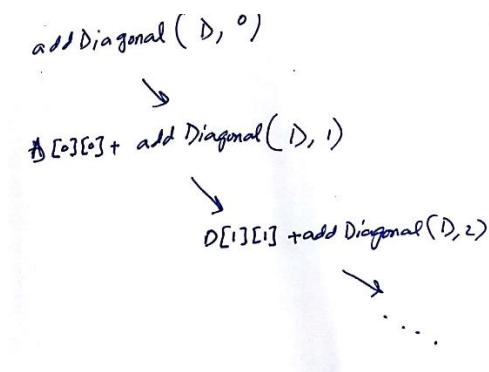 addDiagonal(D, 0)
D[0][0] + addDiagonal(D, 1)
D[1][1] + addDiagonal(D, 2)
.....